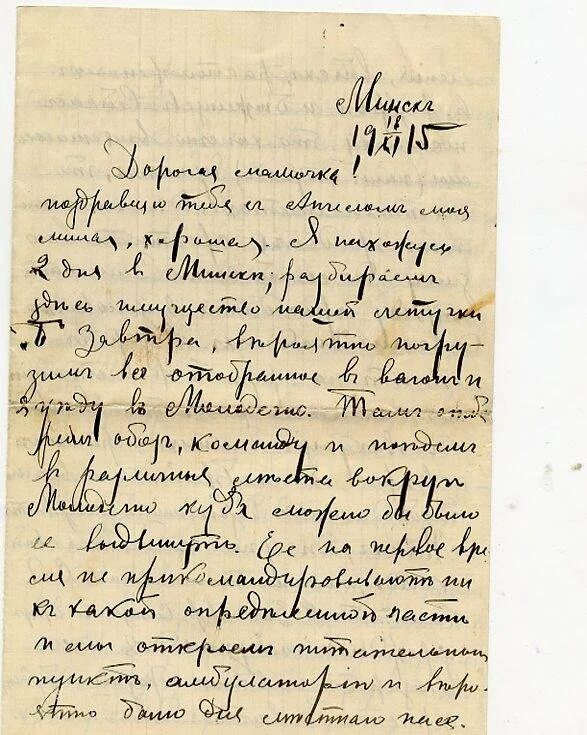 Минскъ
19 18/XI 15
Дорогая мамочка!
поздравляю тебя съ Ангеломъ моя
милая, хорошая. Я нахожусь
2 дня въ Минскѣ, разбираемъ
здѣсь имущество нашей летучки
Завтра, вѣроятно погру-
зимъ все отобранное въ вагонъ и
ѣду въ Молодечно. Тамъ
обоз, команду и поѣдемъ
въ различныя мѣста вокругъ
Молодечно куда можно бы было
ее выдвинуть. Ее на первое вре
мя не прикомандировываютъ ни
къ какой опредѣленной части
и мы откроемъ питательный
пунктъ, амбулаторію и вѣро-
ятно баню для мѣстнаго насе.